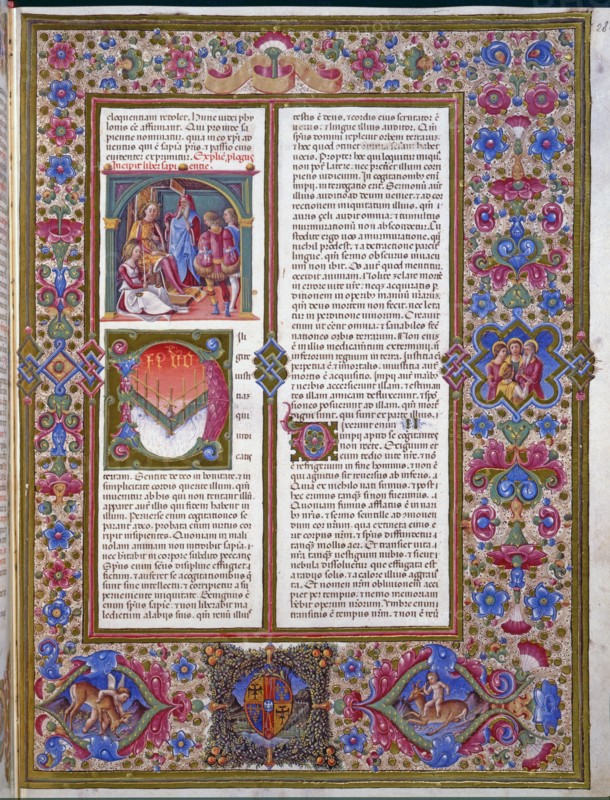 28
eloquentiam redolet. Hunc iudei phy
lonis eē affirmant. Qui
piente nominatur. quia in
uentus qui ē sapia pris. 7 passio eius
euidenter exprimitur. Explic
Incipit liber sapientie.
ligite
iusti
tiam
qui
iudi
catis
terram. Sentite de dno in bonitate. 7 in
simplicitate cordis querite illum. qm
inuenitur ab his qui non temtant illū.
apparet aut illis qui fidem habent in
illum. Peruerse enim cogitationes se
parant a deo. probata enim uirtus cor
ripit insipientes. Quoniam in mali
uolam animam non introibit sapia. 7
nec bitabit in corpore subdito peccatis
Spūs enim scūs discipline effugiet
fictum. 7 auferet se a cogitationibus q̄
sunt sine intellectu. 7 corripietur a su
perueniente iniquitate. Benignus ē
enim spūs sapie. 7 non liberabit ma
ledictum a labijs suis. qm renū illius
testis ē deus. 7 cordis eius scrutator ē
uerus. 7 lingue illius auditor. Qm
spūs domini repleuit orbem terrarum.
7 hoc quod continet omnia scientiam habet
uocis. Propter hoc qui loquitur iniqua.
non pot latere. nec preteriet illum corri
piens iudicium. In cogitationibus eni
impij. interrogatio erit. Sermonū aut
illius auditio ad deum ueniet. 7 ad cor
rectionem iniquitatum illius. qm
auris zeli audit omnia. 7 tumultus
murmurationū non abscondetur. Cu
stodite ergo uos a murmuratione. que
nichil prodest. 7 a detractione parcite
lingue. qm sermo obscurus in uacu
um non ibit. Os aut quod mentitur.
occidit animam. Nolite zelare morte
in errore uite ure. neq acquiratis p
ditionem in operibus manuū urarum.
qm deus mortem non fecit. nec leta
tur in perditione uiuorum. Creauit
enim ut eent omnia. 7 sanabiles fec
nationes orbis terrarum. Non enim
ē in illis medicamentum exterminij. nec
inferorum regnum in terra. Iustitia ē
perpetua ē 7 immortalis. iniustitia aut
mortis ē acquisitio. Impij aut manibus
7 uerbis accersierunt illam. 7 estiman
tes illam amicam defluxerunt. 7 spo
siones posuerunt ad illam. qm morte
digni sunt. qui sunt ex parte illius.
ixerunt enim II
impij apud se cogitantes
non recte. Exiguum et
cum tedio uite nre. 7 nō
ē refrigerium in fine hominis. 7 non ē
qui agnitus sit reuersus ab inferis. Q
uia ex nichilo nati sumus. 7 post
hoc erimus tanq si non fuerimus.
Quoniam fumus afflatus ē in nari
bus nris. 7 sermo scintille ad commouen
dum cor nrum. qua extincta cinis e
rit corpus nrm. 7 spūs diffundetur
tanq mollis aer. Et transiet uita n
ra tanq uestigium nubis. 7 sicut
nebula dissoluetur que effugata est
a radijs solis. 7 a calore illius aggrauata
Et nomen nrm obliuionem acci
piet per tempus. 7 nemo memoriam
hēbit operum nrorum. Umbre enim
transitus ē tempus nrm. 7 non ē